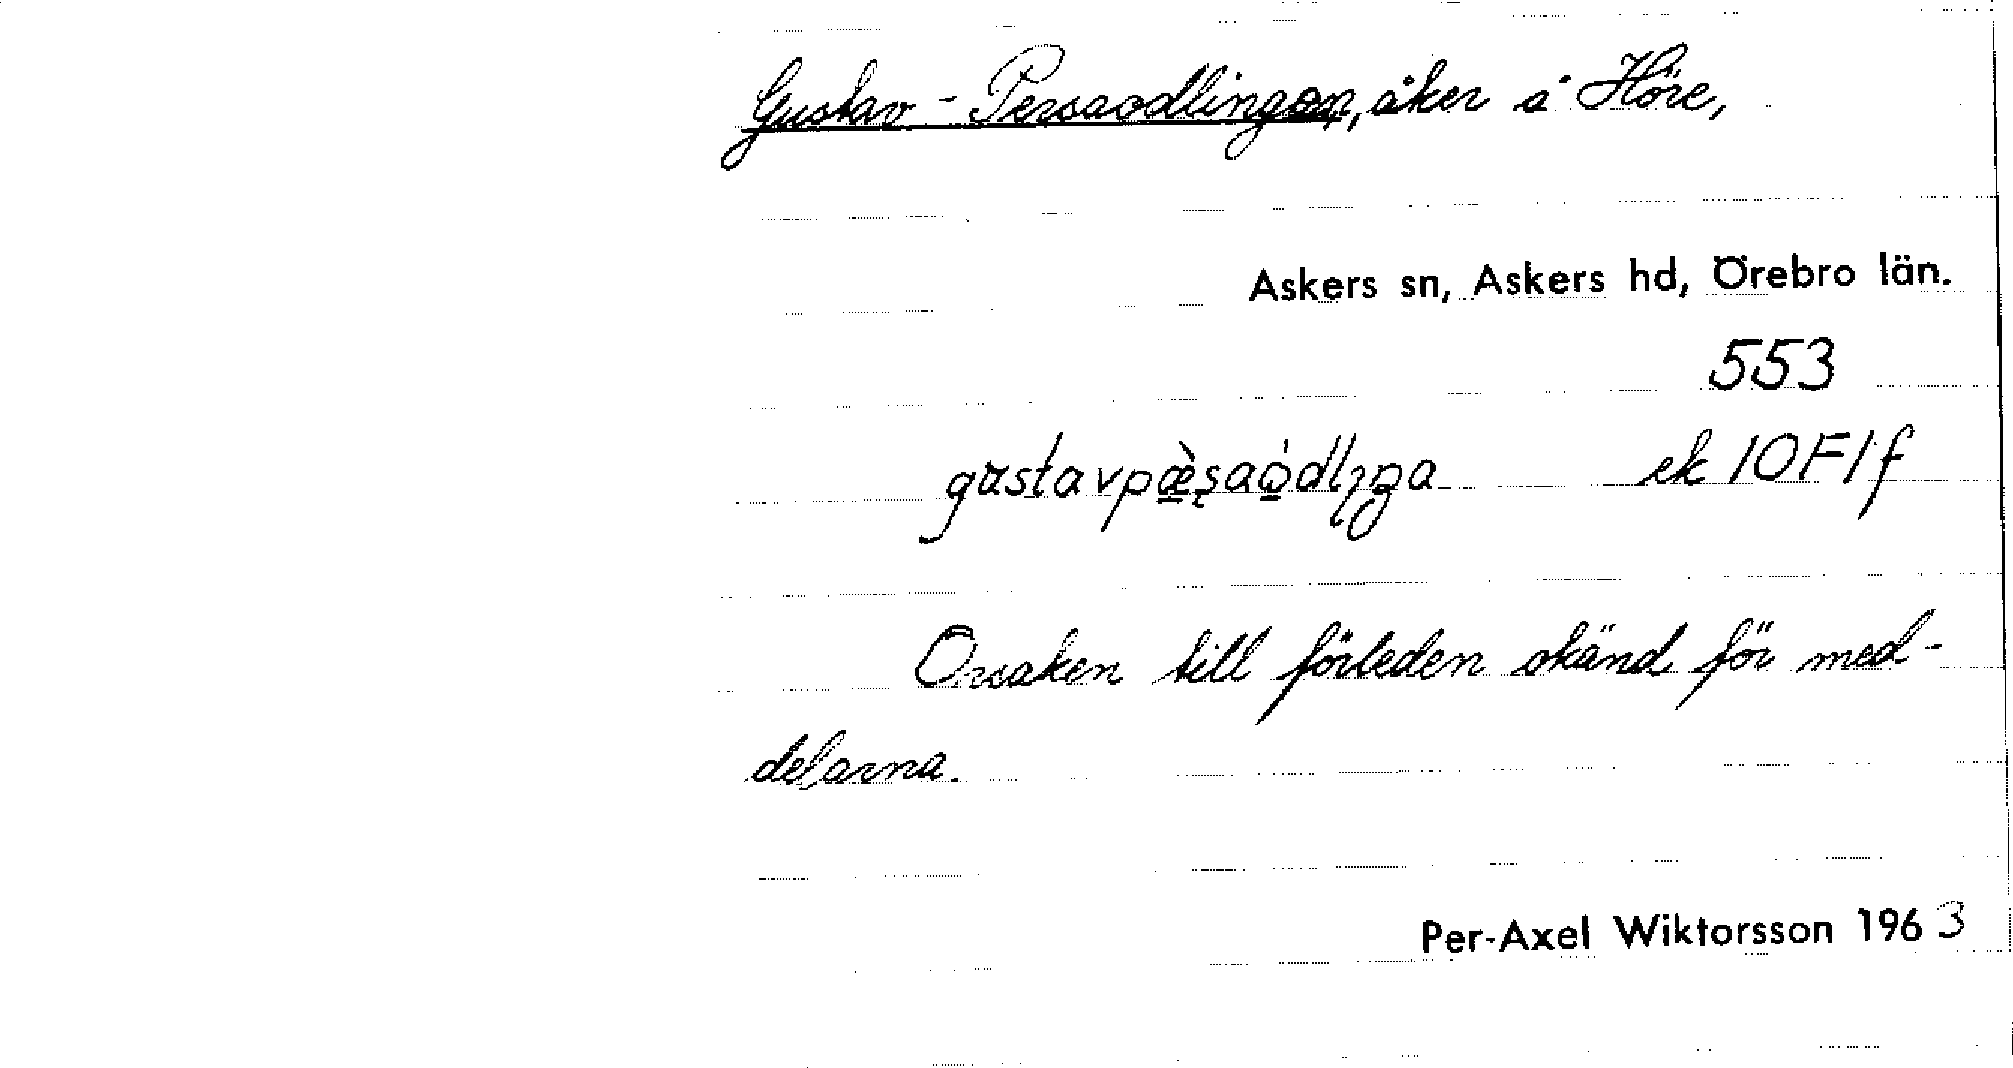 Gustav-Persaodlingen, åker å Höre,
Askers sn, Askers hd, Örebro län.
553
ek 10F1f
Orsaken till förleden okänd för med-
delarna.
Per-Axel Wiktorsson 1963